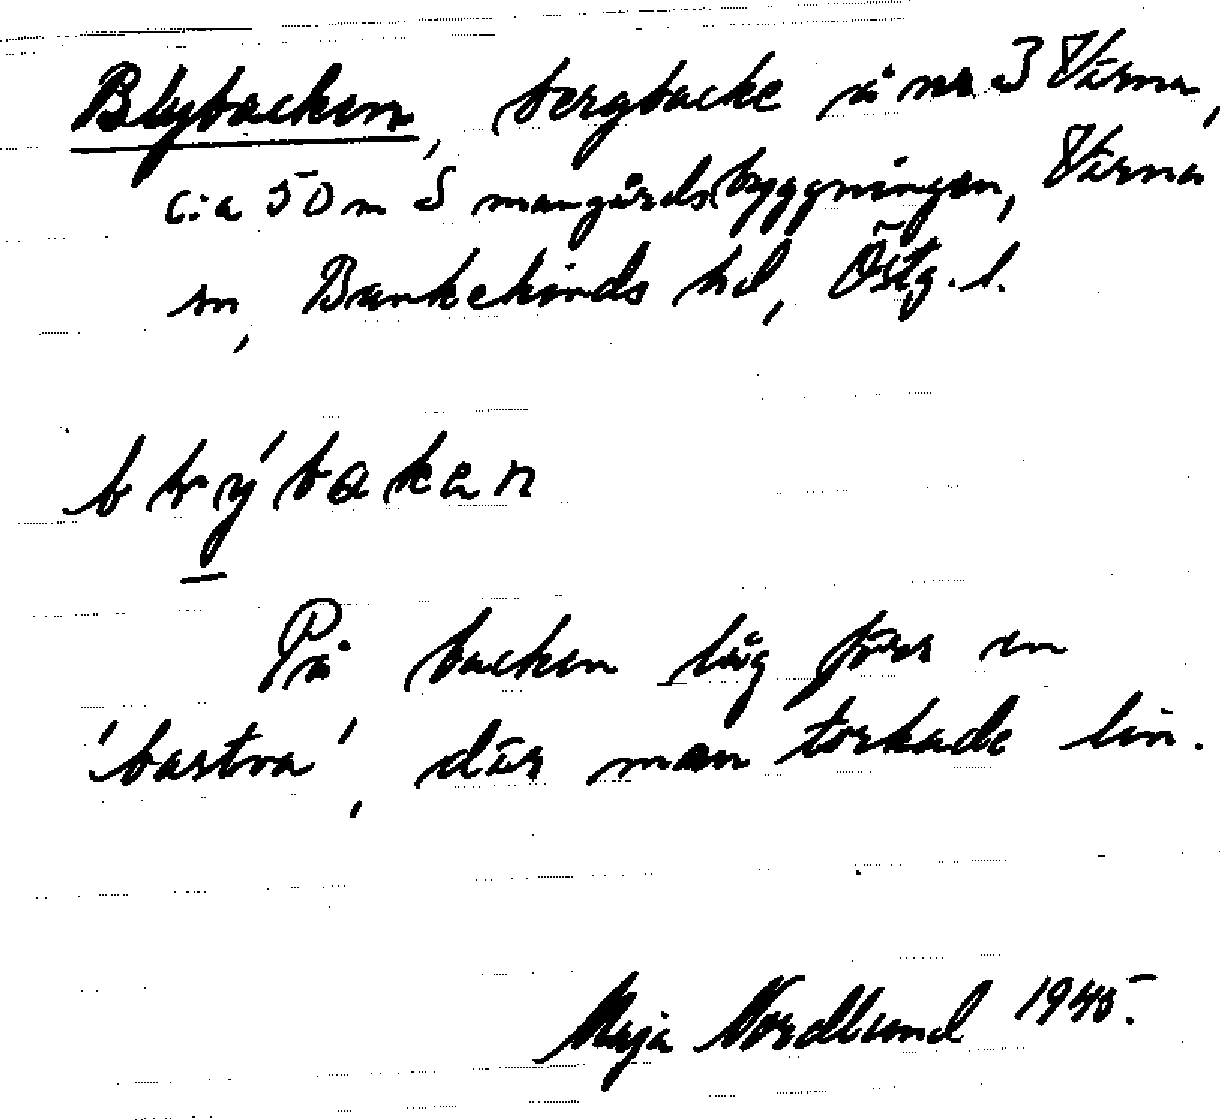 Blybacken, bergbacke å nr 3 Värna,
c:a 50 m S mangårdsbyggningen, Värna
sn, Bankekinds hd, Östg. l.
b l y ́ b a k e n
På backen låg förr en
'bastva', där man torkade lin.
Maja Nordlund 1945.